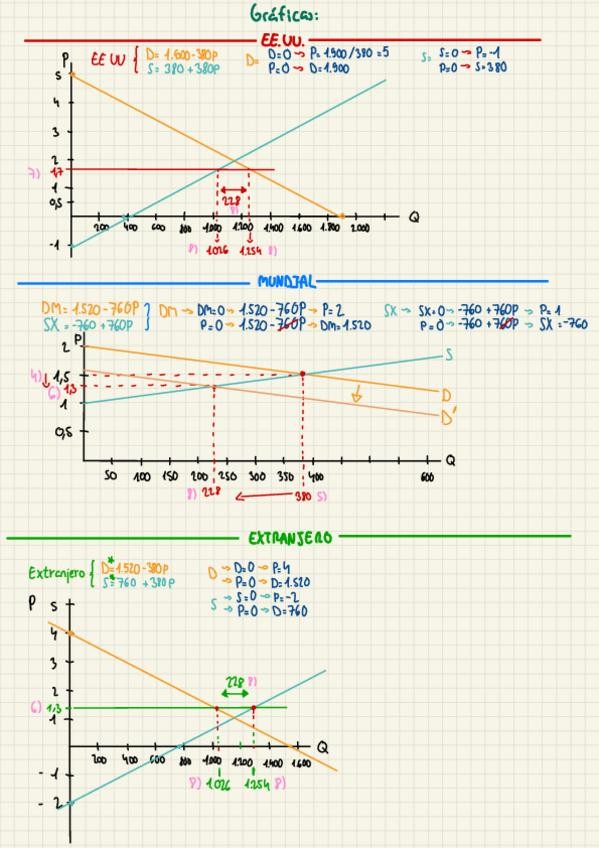 Gráficas:
EE.UU.
EE UU { D = 1.600-380P
S = 380 + 380P
D= D=0 → P = 1.900/380 = 5
P=0 → D=1.900
S= S=0 → P=-1
P=0 → S=380
P
5
4
3
2
7) 1,7
1
0,5
-1
228
8)
200 400 600 800 1.000 1.200 1.400 1.600 1.800 2.000 Q
8) 1.026 1.254 8)
MUNDIAL
DM = 1.520-760P
SX = -760 +760P
DM → DM=0 → 1.520-760P → P=2
P=0 → 1.520-760P → DM=1.520
SX → SX=0 → -760 +760P → P=1
P=0 → -760 +760P → SX=-760
P
2
4) 1,5
6) 1,3
1
0,5
S
D
D'
50 100 150 200 250 300 350 400 600 Q
8) 228 380 5)
EXTRANJERO
Extranjero { D*=1.520-380P
S*=760 +380P
D → D=0 → P=4
→ P=0 → D=1.520
S → S=0 → P=-2
→ P=0 → D=760
P
5
4
3
2
6) 1,3
1
-1
-2
228 8)
200 400 600 800 1.000 1.200 1.400 1.600 Q
8) 1.026 1.254 8)